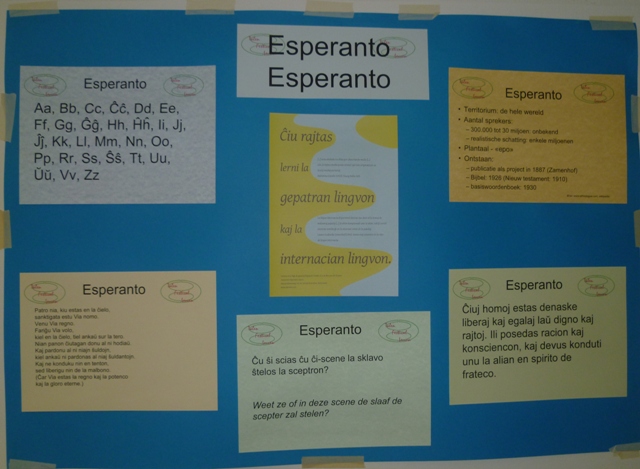 Esperanto
Esperanto
Esperanto
Aa, Bb, Cc, Ĉĉ, Dd, Ee,
Ff, Gg, Ĝĝ, Hh, Ĥĥ, Ii, Jj,
Ĵĵ, Kk, Ll, Mm, Nn, Oo,
Pp, Rr, Ss, Ŝŝ, Tt, Uu,
Ŭŭ, Vv, Zz
Ĉiu rajtas
lerni la
gepatran lingvon
kaj la
internacian lingvon.
Esperanto
• Territorium: de hele wereld
• Aantal sprekers:
– 300.000 tot 30 miljoen: onbekend
– realistische schatting: enkele miljoenen
• Plantaal - «epo»
• Ontstaan:
– publicatie als project in 1887 (Zamenhof)
– Bijbel: 1926 (Nieuw testament: 1910)
– basiswoordenboek: 1930
Esperanto
Patro nia, kiu estas en la ĉielo,
sanktigata estu Via nomo.
Venu Via regno.
Fariĝu Via volo,
kiel en la ĉielo, tiel ankaŭ sur la tero.
Nian panon ĉiutagan donu al ni hodiaŭ.
Kaj pardonu al ni niajn ŝuldojn,
kiel ankaŭ ni pardonas al niaj ŝuldantojn.
Kaj ne konduku nin en tenton,
sed liberigu nin de la malbono.
(Ĉar Via estas la regno kaj la potenco
kaj la gloro eterne.)
Esperanto
Ĉu ŝi scias ĉu ĉi-scene la sklavo
ŝtelos la sceptron?
Weet ze of in deze scene de slaaf de
scepter zal stelen?
Esperanto
Ĉiuj homoj estas denaske
liberaj kaj egalaj laŭ digno kaj
rajtoj. Ili posedas racion kaj
konsciencon, kaj devus konduti
unu la alian en spirito de
frateco.